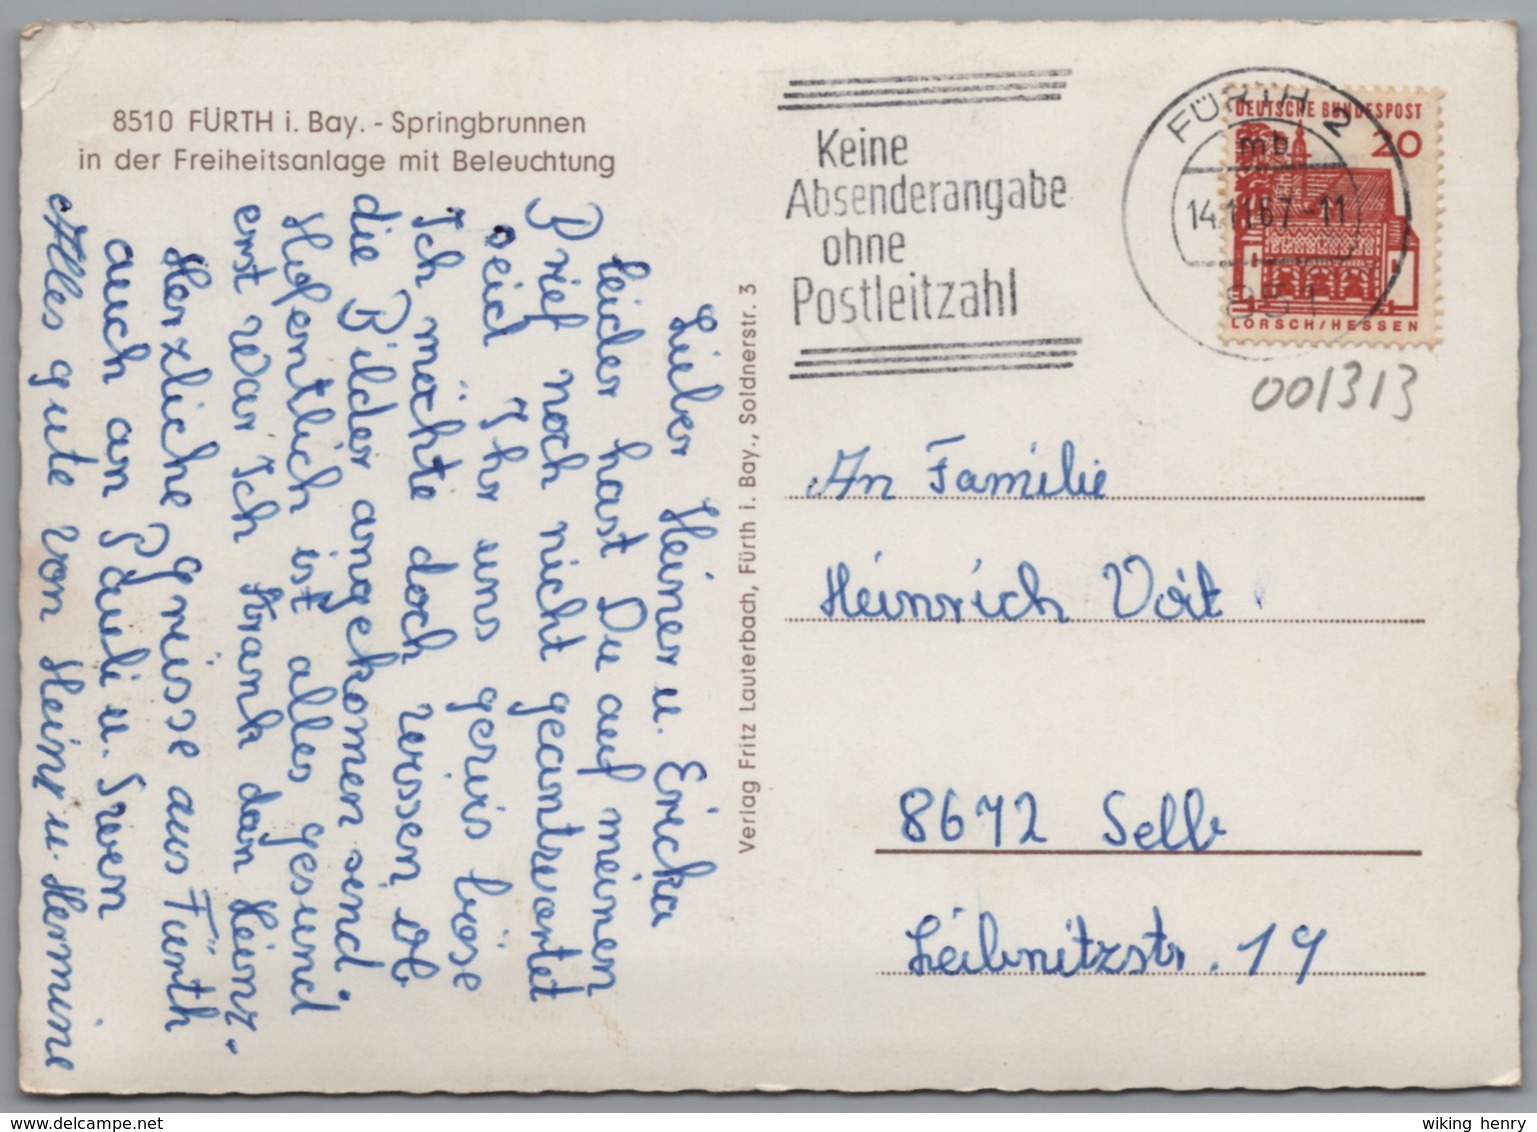 8510 FÜRTH i. Bay. - Springbrunnen
in der Freiheitsanlage mit Beleuchtung
Lieber Heiner u. Ericka
leider hast Du auf meinen
Brief noch nicht geantwortet
seid Ihr uns geris böse
Ich möchte doch wissen ob
die Bilder angekomen send
Hofentlich ist alles gesund
erst war Ich Krank dan Heinz.
Herzliche Grüsse aus Fürth
auch an Pauli u. Swen
Alles gute von Heinz u. Hermine
Verlag Fritz Lauterbach, Fürth i. Bay., Soldnerstr. 3
Keine
Absenderangabe
ohne
Postleitzahl
FÜRTH 2
mb
14.11.67-11
851
DEUTSCHE BUNDESPOST
20
LORSCH/HESSEN
001313
An Familie
Heinrich Voit
8672 Selb
Leibnitzstr. 19
wiking henry
www.delcampe.net